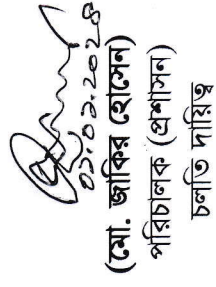 ০১.০১.২০২৪
(মো. জাকির হোসেন)
পরিচালক (প্রশাসন)
চলতি দায়িত্ব